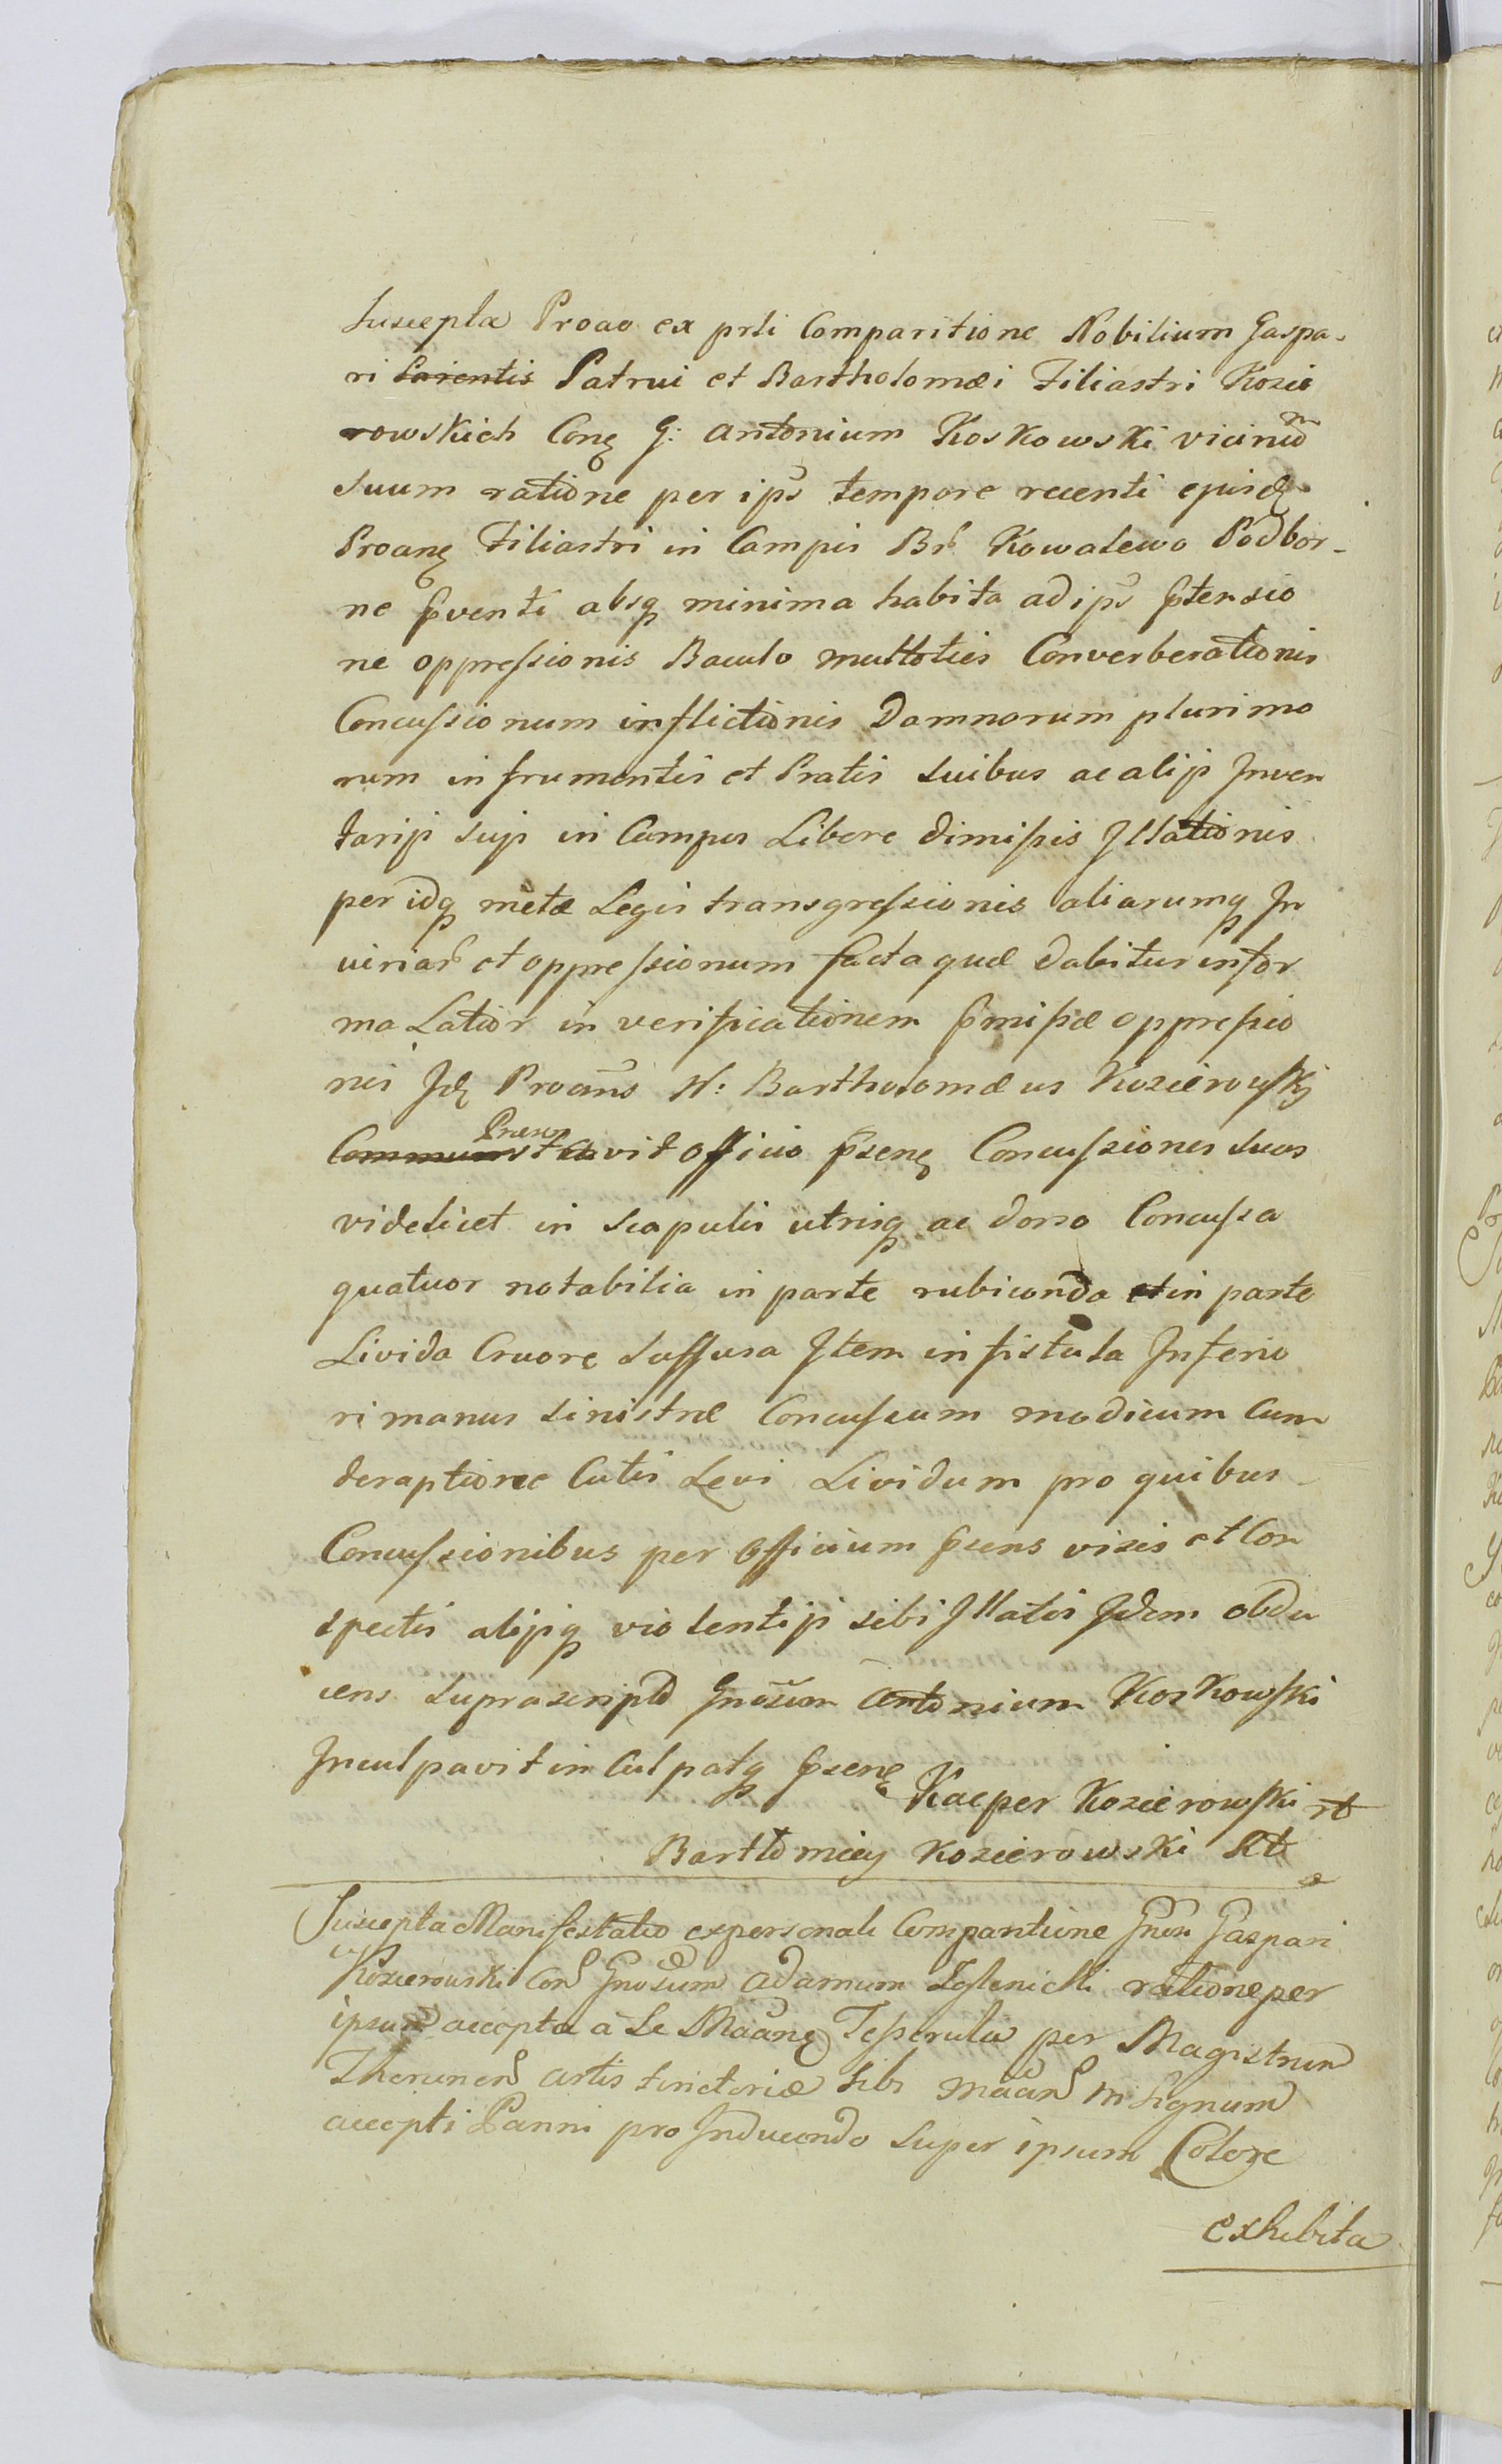 Suscepta Proao ex prli Comparitione Nobilium Gaspa-
ri Parentis Patrui et Bartholomæi Filiastri Kozie
rowskich Conę G: Antonium Koskowski vicinum
suum ratione per ips tempore recenti ejusdę
Proanę Filiastri in Campis Br Kowalewo Podbor-
ne pventi absq minima habita ad ips ptensio
ne oppressionis Baculo multoties Converberationis
Concussionum inflictionis Damnorum plurimo
rum in frumentis et Pratis Suibus ac alijs Inven
tarijs sujs in Campos Libere dimissis Illationis
per idq metæ Legis transgressionis aliarumq In
uiriar et oppressionum facta quæ dabitur infor
ma Latior in verificationem pmissæ oppressio
nis Idę Proans N: Bartholomæus Kozierowskj
Præsen
Commonstravit Officio psenę Concussiones suas
videlicet in scapulis utrisq ac dorso Concussa
quatuor notabilia in parte rubicunda et in parte
Livida Cruore Suffusa Item in fistula Inferio
ri manus sinistræ Concussum modicum Cum
deraptione Cutis Levi Lividum pro quibus
Concussionibus per Officium psens visis et Con
spectis alijsq violentijs sibi Illatis Idem obdu
cens suprascriptum Gnosum Antonium Koskowski
Inculpavit inculpatq psenę Kacper Kozierowski
Bartłomiey Kozierowski
Suscepta Manifestatio ex personali Comparitione Gnor Gaspari
Kozierowski Con Gnosum Adamum Zglenicki ratione per
ipsum accepta à Se Maanę Tesserula per Magistrum
Thorunen artis tinctoriæ sibi in signum
accepti Panni pro Inducendo super ipsum Colore
exhibita